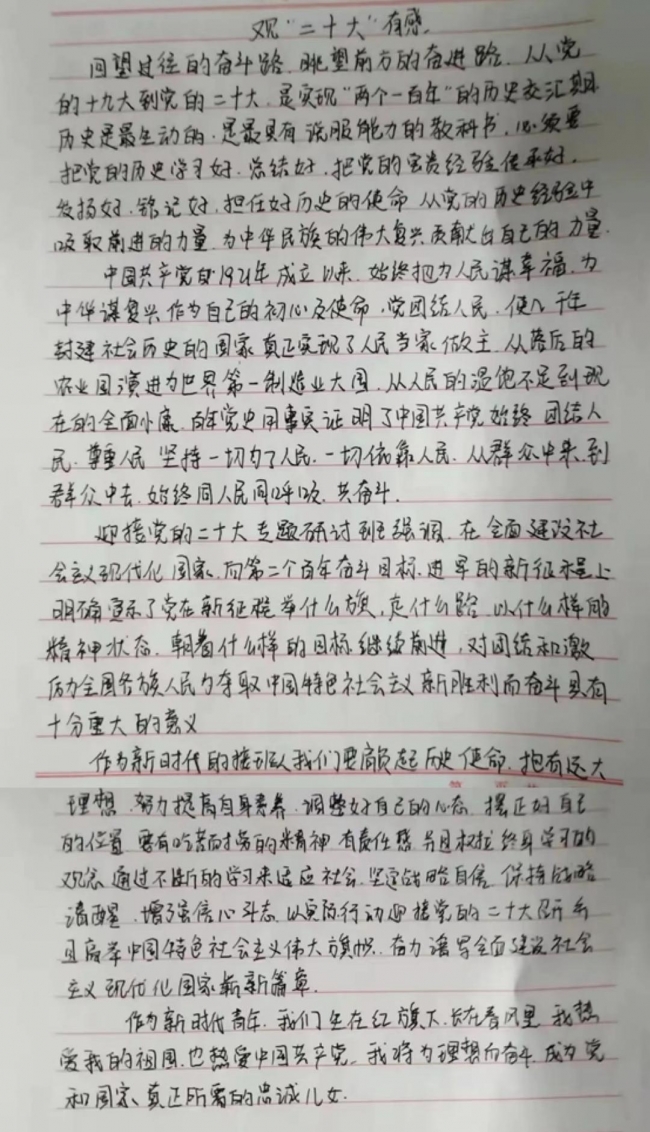 观“二十大”有感
回望过往的奋斗路,眺望前方的奋进路,从党
的十九大到党的二十大,是实现“两个一百年”的历史交汇期.
历史是最生动的.是最具有说服能力的教科书,必须要
把党的历史学习好.总结好,把党的宝贵经验传承好,
发扬好.铭记好,担任好历史的使命,从党的历史经验中
吸取前进的力量,为中华民族的伟大复兴贡献出自己的力量.
中国共产党自1921年成立以来,始终把为人民谋幸福,为
中华谋复兴作为自己的初心及使命,党团结人民,使几千年
封建社会历史的国家真正实现了人民当家做主,从落后的
农业国演进为世界第一制造业大国,从人民的温饱不足到现
在的全面小康,百年党史用事实证明了中国共产党始终团结人
民,尊重人民 坚持一切为了人民.一切依靠人民.从群众中来,到
群众中去,始终同人民同呼吸,共奋斗.
迎接党的二十大专题研讨班强调,在全面建设社
会主义现代化国家,向第二个百年奋斗目标进军的新征程上
明确宣示了党在新征程举什么旗,走什么路,以什么样的
精神状态,朝着什么样的目标继续前进,对团结和激
励全国各族人民为夺取中国特色社会主义新胜利而奋斗具有
十分重大的意义
作为新时代的接班人我们要肩负起历史使命.抱有远大
理想,努力提高自身素养,调整好自己的心态,摆正好自己
的位置 要有吃苦耐劳的精神 有责任感 并且 终身学习的
观念,通过不断的学习来适应社会,坚定战略自信,保持战略
清醒,增强信心斗志,以实际行动迎接党的二十大召开
且高举中国特色社会主义伟大旗帜,奋力谱写全面建设社会
主义现代化国家崭新篇章.
作为新时代青年,我们生在红旗下,长在春风里,我热
爱我的祖国,也热爱中国共产党,我将为理想而奋斗,成为党
和国家真正所需的忠诚儿女.